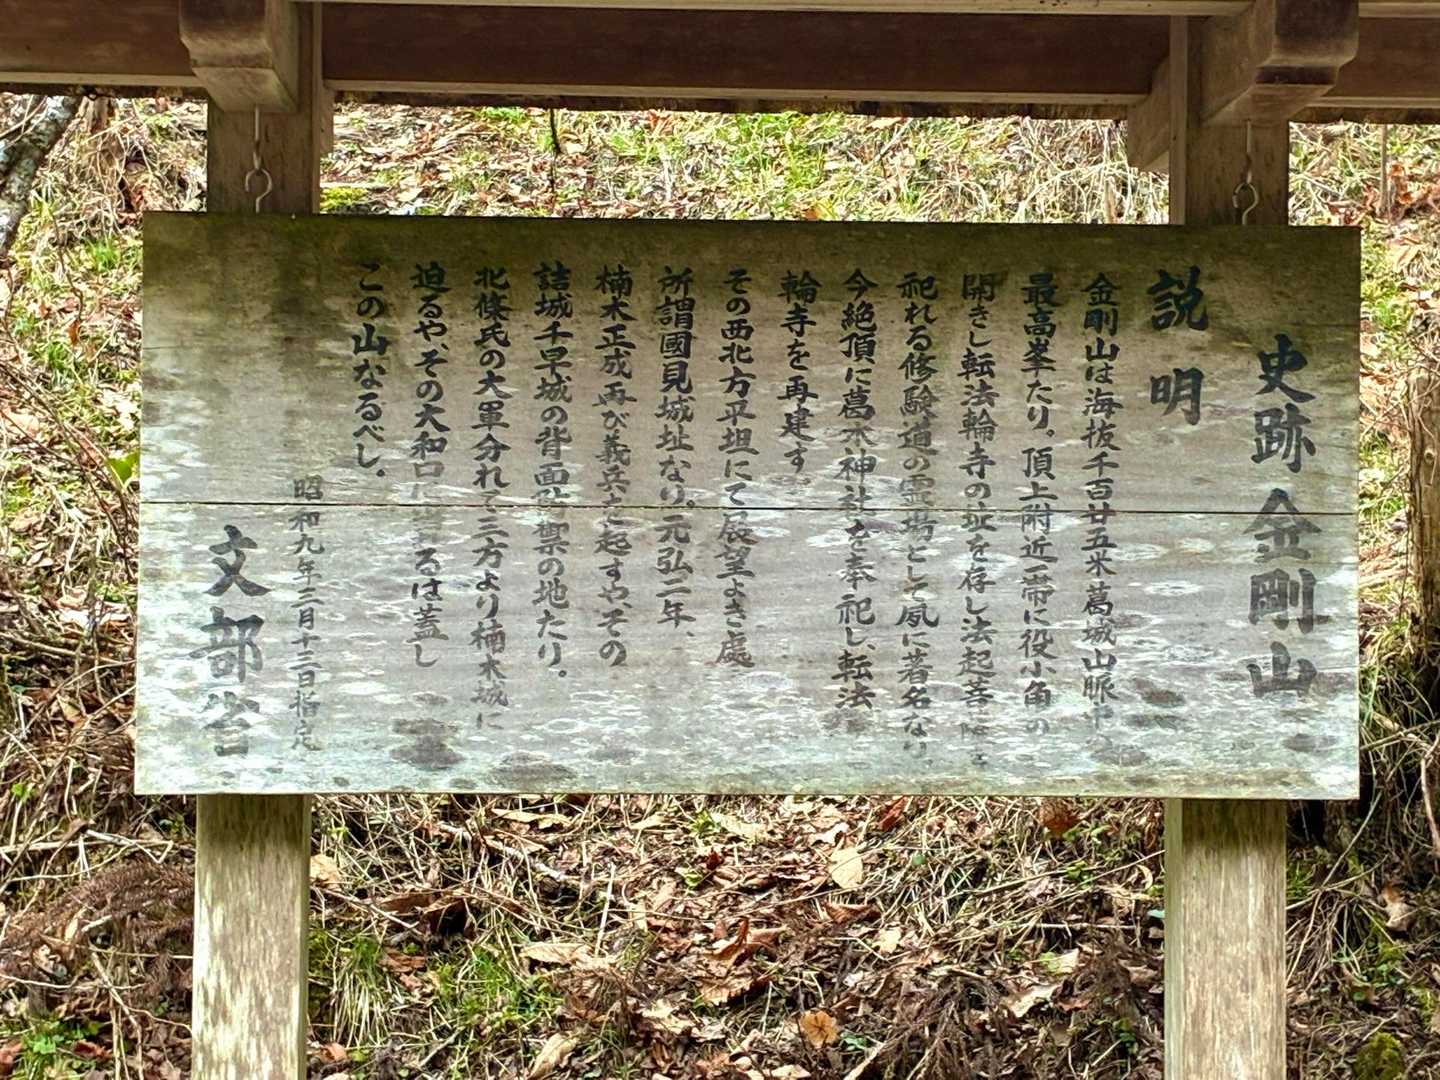 史跡 金剛山
説明
金剛山は海抜千百廿五米葛城山脈中
最高峯たり。頂上附近一帯に役小角の
開きし転法輪寺の址を存し法起菩
祀れる修験道の霊場として夙に著名なり
今絶頂に葛木神社を奉祀し、転法
輪寺を再建す
その西北方平坦にて展望よき處
所謂國見城址なり。元弘二年、
楠木正成再び義兵を起すや、その
詰城千早城の背面防禦の地たり。
北條氏の大軍分れて三方より楠木城に
迫るや、その大和口に るは蓋し
この山なるべし。
昭和九年三月十三日指定
文部省